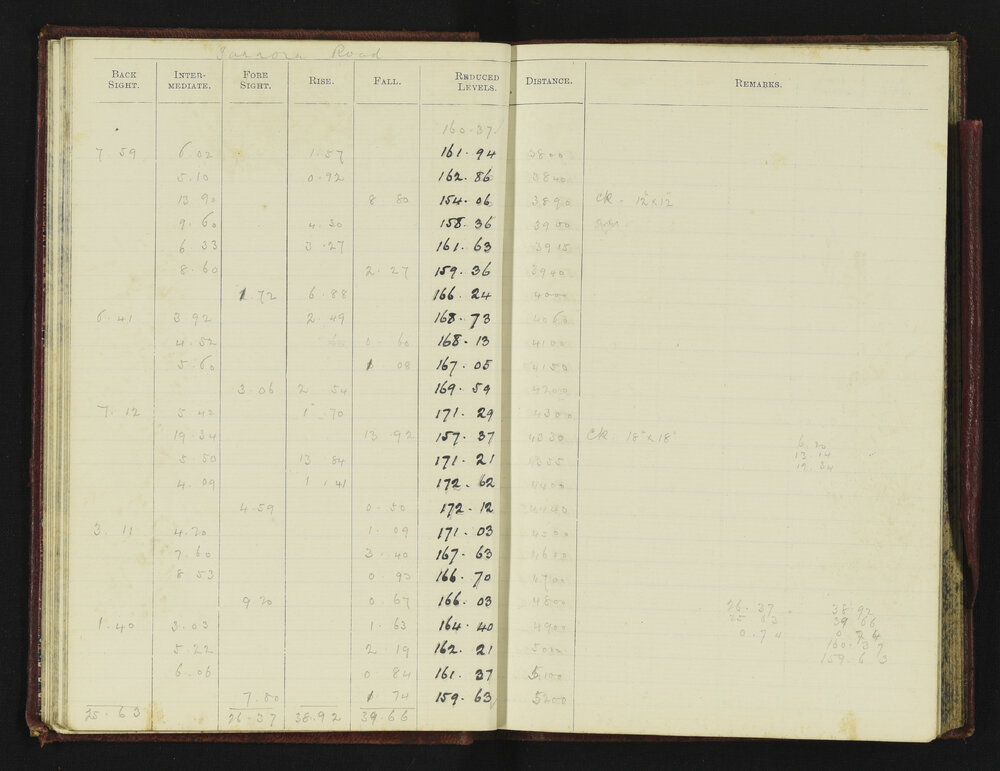 Road
BACK SIGHT. INTER-MEDIATE. FORE SIGHT. RISE. FALL. REDUCED LEVELS. DISTANCE. REMARKS.
160.37
7.59 6.02 1.57 161.94 3800
5.10 0.92 162.86 3840
13.90 8 80 154.06 3890 CK - 12" x 12"
9.60 4.30 158.36 3900
6 33 3.27 161.63 3915
8.60 2.27 159.36 3940
1.72 6.88 166.24 4000
6.41 3.92 2.49 168.73 4060
4.52 0.60 168.13 4100
5.60 1 08 167.05 4150
3.06 2 54 169.59 4200
7.12 5.42 1.70 171.29 4300
19 34 13 92 157.37 4330 CK. 18" x 18" 6.20
13.14
5.50 13 84 171.21 4355 19.34
4.09 1.41 172.62 4400
4.59 0.50 172.12 4440
3.11 4.20 1.09 171.03 4500
7.60 3.40 167.63 4600
8 53 0.93 166.70 4700
9.20 0.67 166.03 4800 26.37 38.92
25 63 39 66
1.40 3.03 1.63 164.40 4900 0.74 0 74
5.22 2.19 162.21 5000 160.37
159.63
6.06 0 84 161.37 5100
7.80 1 74 159.63 5200
25.63 26.37 38.92 39.66